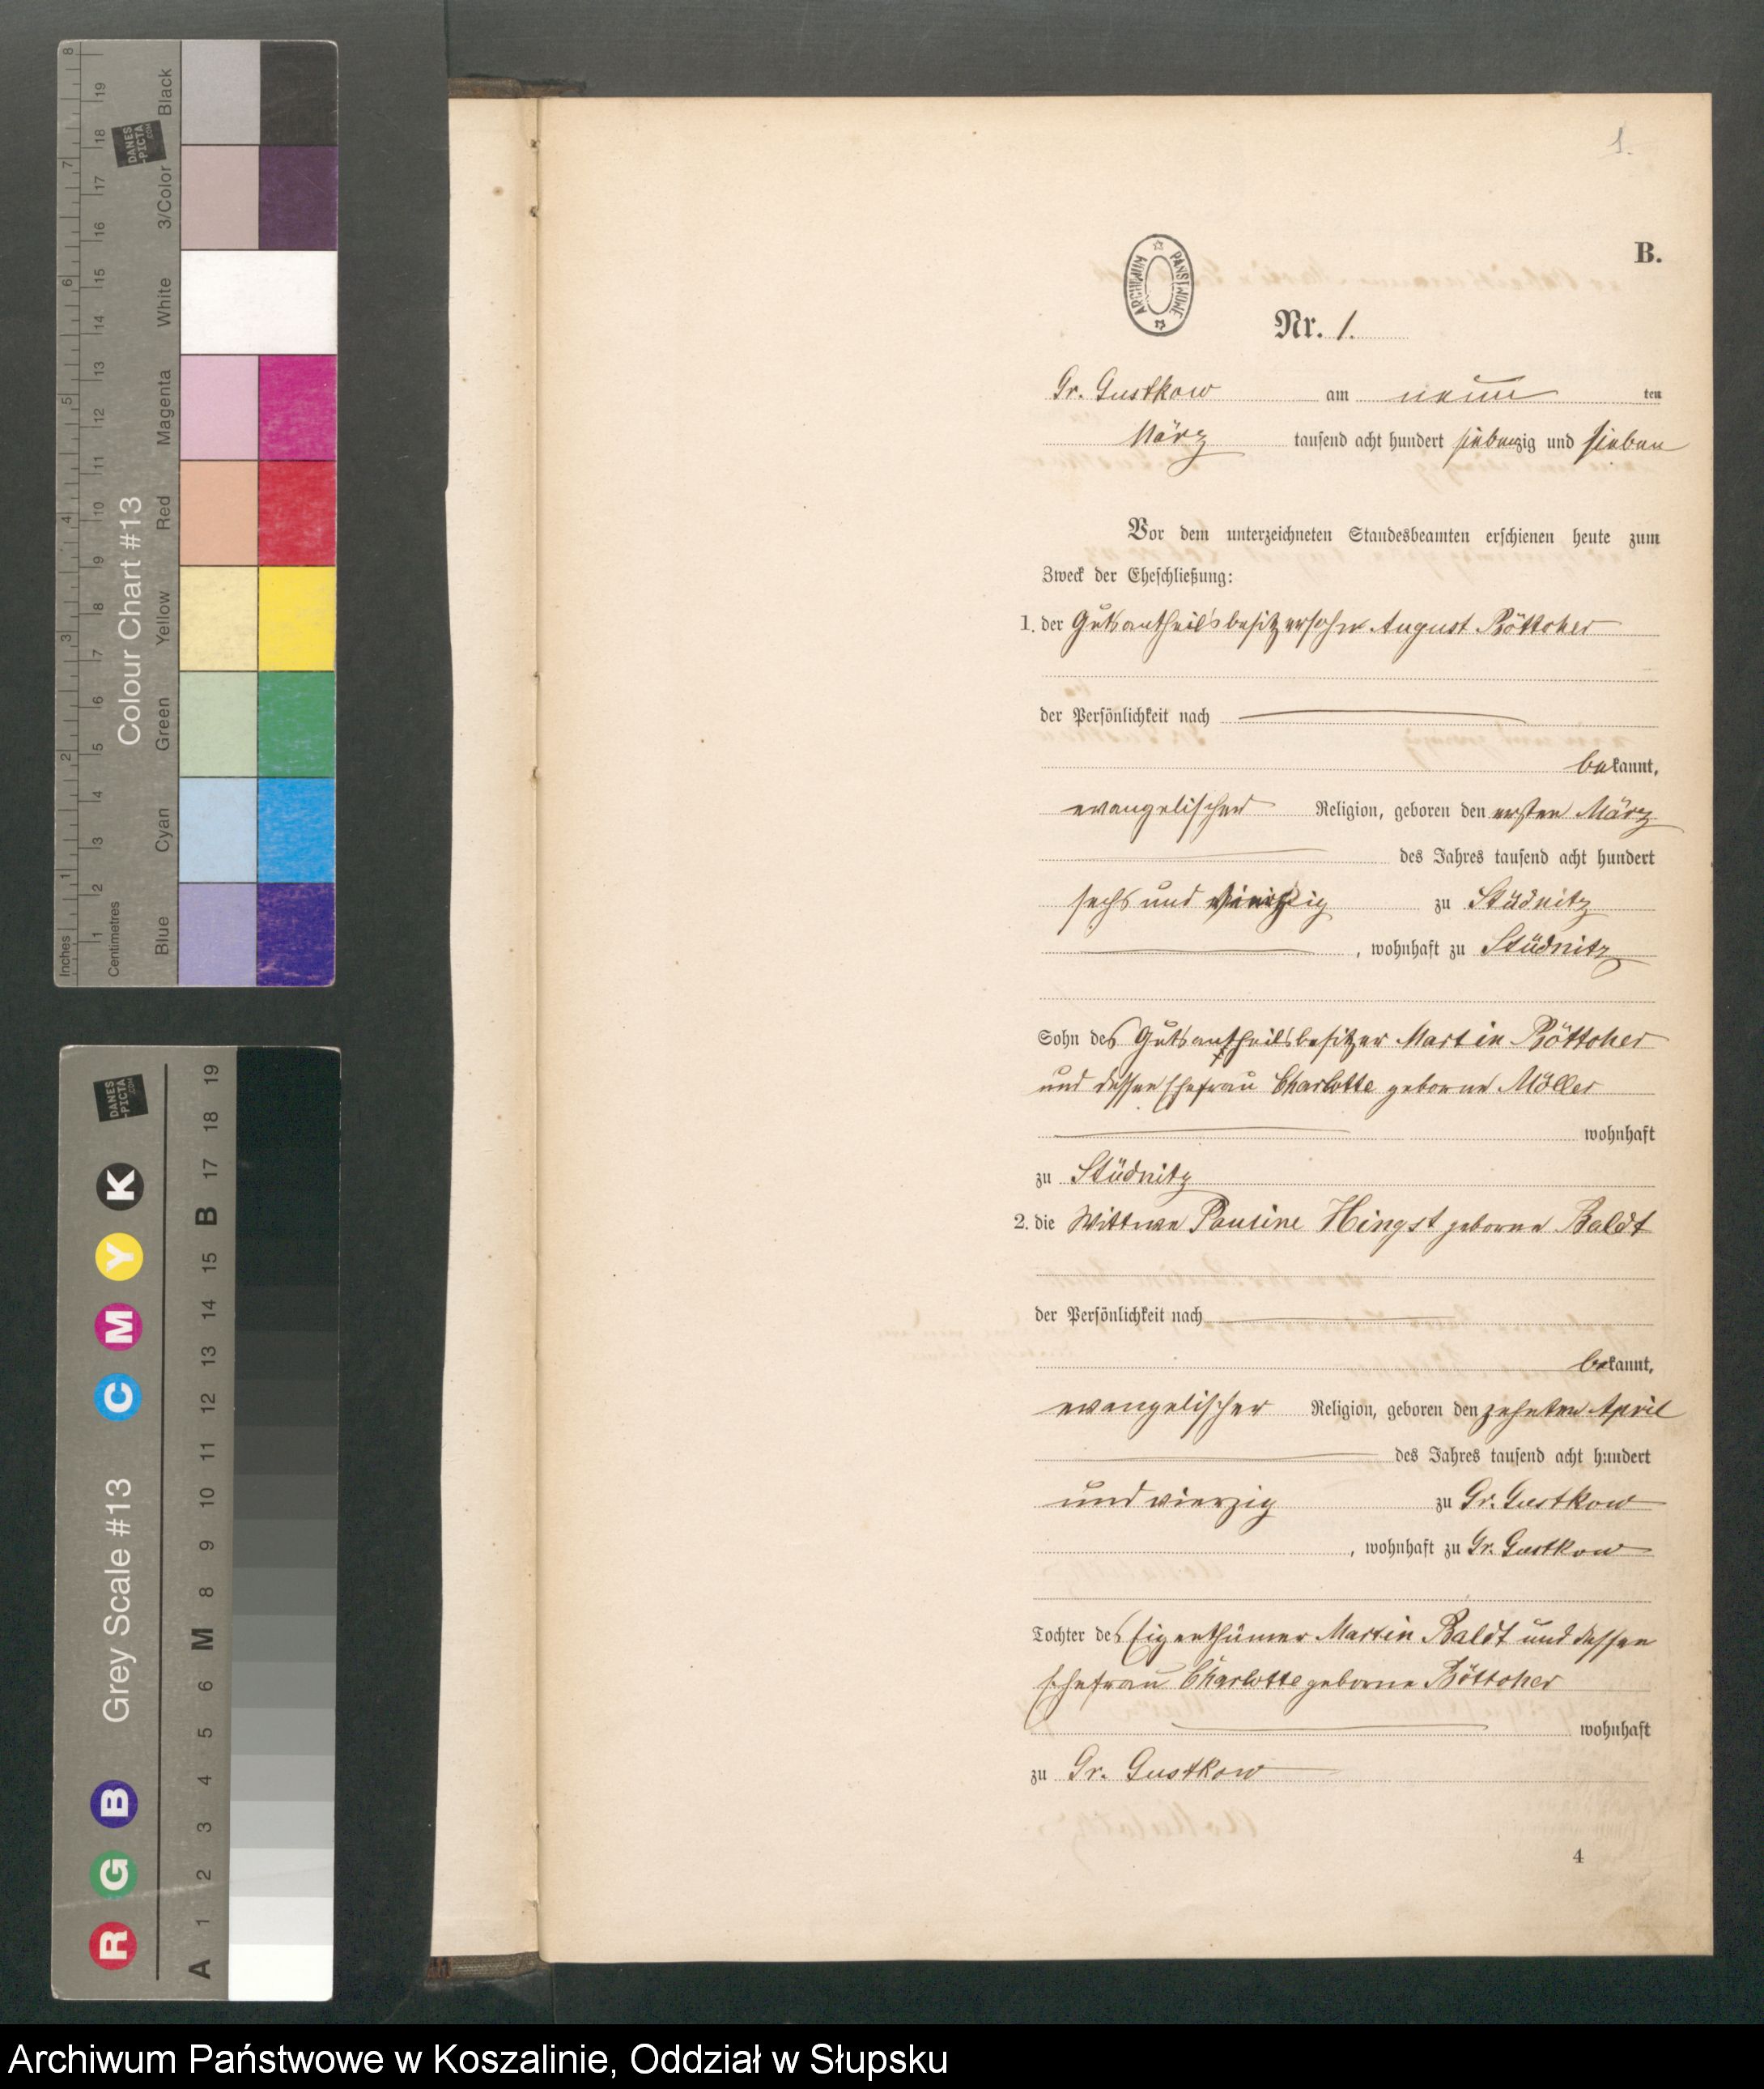 1.
B.
ARCHIWUM PAŃSTWOWE
Nr. 1.
Gr. Gustkow am neun ten
März tausend acht hundert siebenzig und sieben
Vor dem unterzeichneten Standesbeamten erschienen heute zum
Zweck der Eheschließung:
1. der Gutsantheilsbesitzersohn August Böttcher
der Persönlichkeit nach
bekannt,
evangelischer Religion, geboren den ersten März
des Jahres tausend acht hundert
sechs und vierzig zu Stüdnitz
, wohnhaft zu Stüdnitz
Sohn des Gutsantheilsbesitzer Martin Böttcher
und dessen Ehefrau Charlotte geborne Möller
wohnhaft
zu Stüdnitz
2. die Wittwe Pauline Hingst geborne Baldt
der Persönlichkeit nach
bekannt,
evangelischer Religion, geboren den zehnten April
des Jahres tausend acht hundert
und vierzig zu Gr. Gustkow
, wohnhaft zu Gr. Gustkow
Tochter des Eigenthümer Martin Baldt und dessen
Ehefrau Charlotte geborne Böttcher
wohnhaft
zu Gr. Gustkow
4
Colour Chart #13
DANES
-PICTA
.COM
Inches
1 2 3 4 5 6 7 8
Centimetres
1 2 3 4 5 6 7 8 9 10 11 12 13 14 15 16 17 18 19
Blue Cyan Green Yellow Red Magenta White 3/Color Black
Grey Scale #13
DANES
-PICTA
.COM
R G B C M Y K
A 1 2 3 4 5 6 M 8 9 10 11 12 13 14 15 B 17 18 19
Archiwum Państwowe w Koszalinie, Oddział w Słupsku